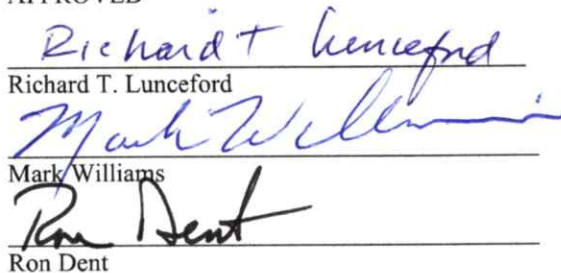 APPROVED
Richard T Lunceford
Richard T. Lunceford
Mark Williams
Mark Williams
Ron Dent
Ron Dent